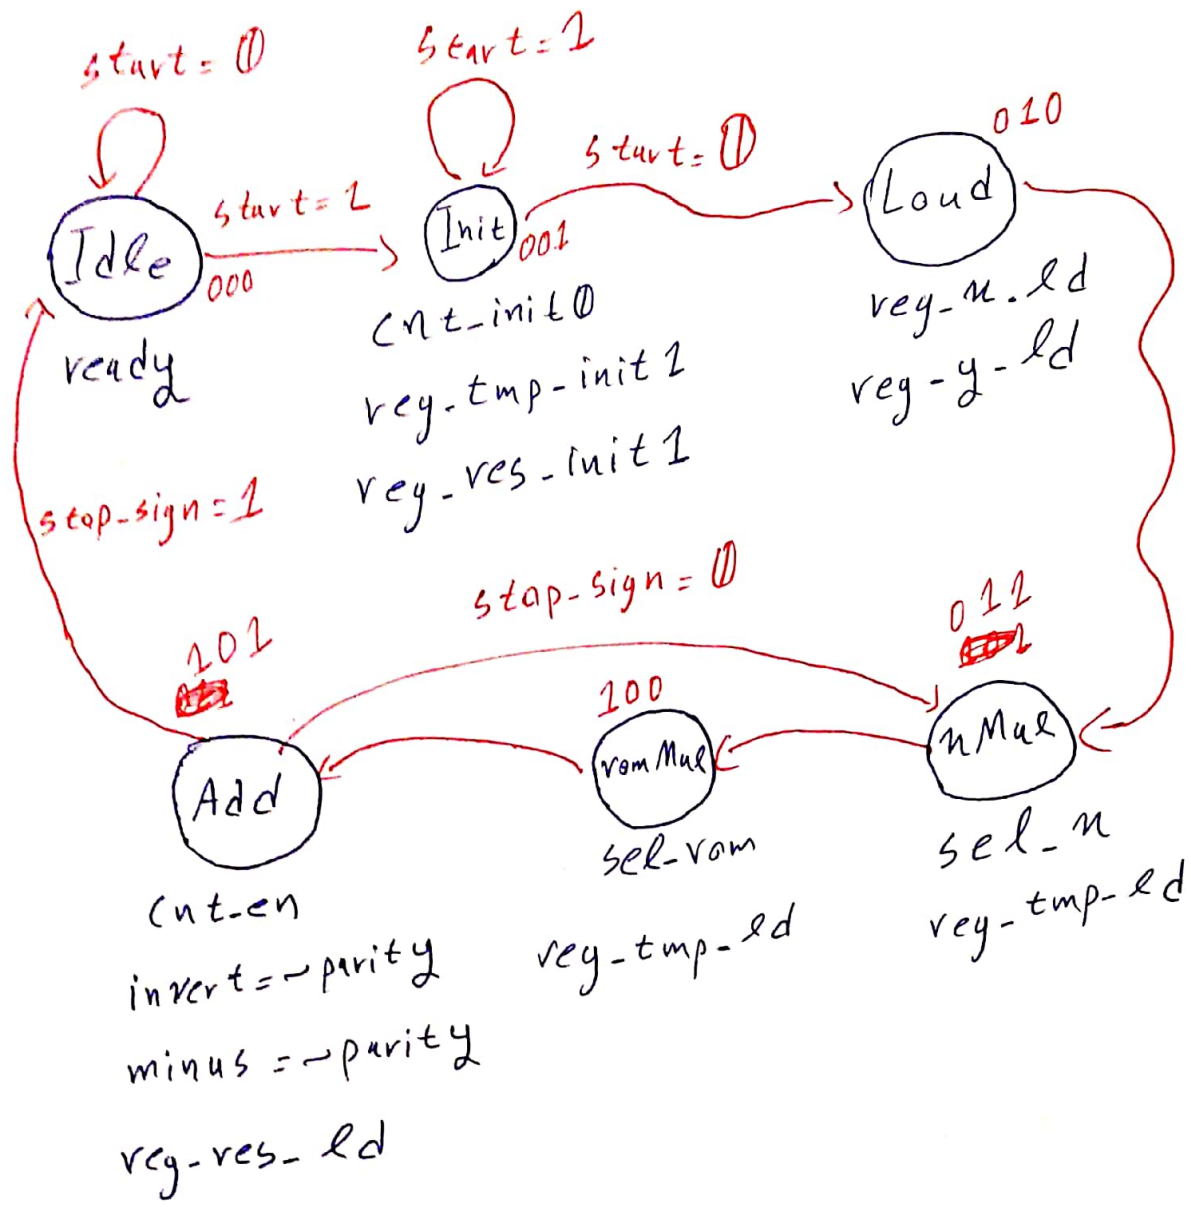 start=0
start=1
start=1
start=0
010
Idle
000
Init
001
Load
ready
cnt_init0
reg_tmp-init1
reg_res_init1
reg_x_ld
reg-y-ld
stop_sign=1
stop_sign=0
101
100
011
Add
romMul
xMul
cnt_en
invert=~parity
minus=~parity
reg_res_ld
sel_rom
reg_tmp_ld
sel_x
reg_tmp_ld